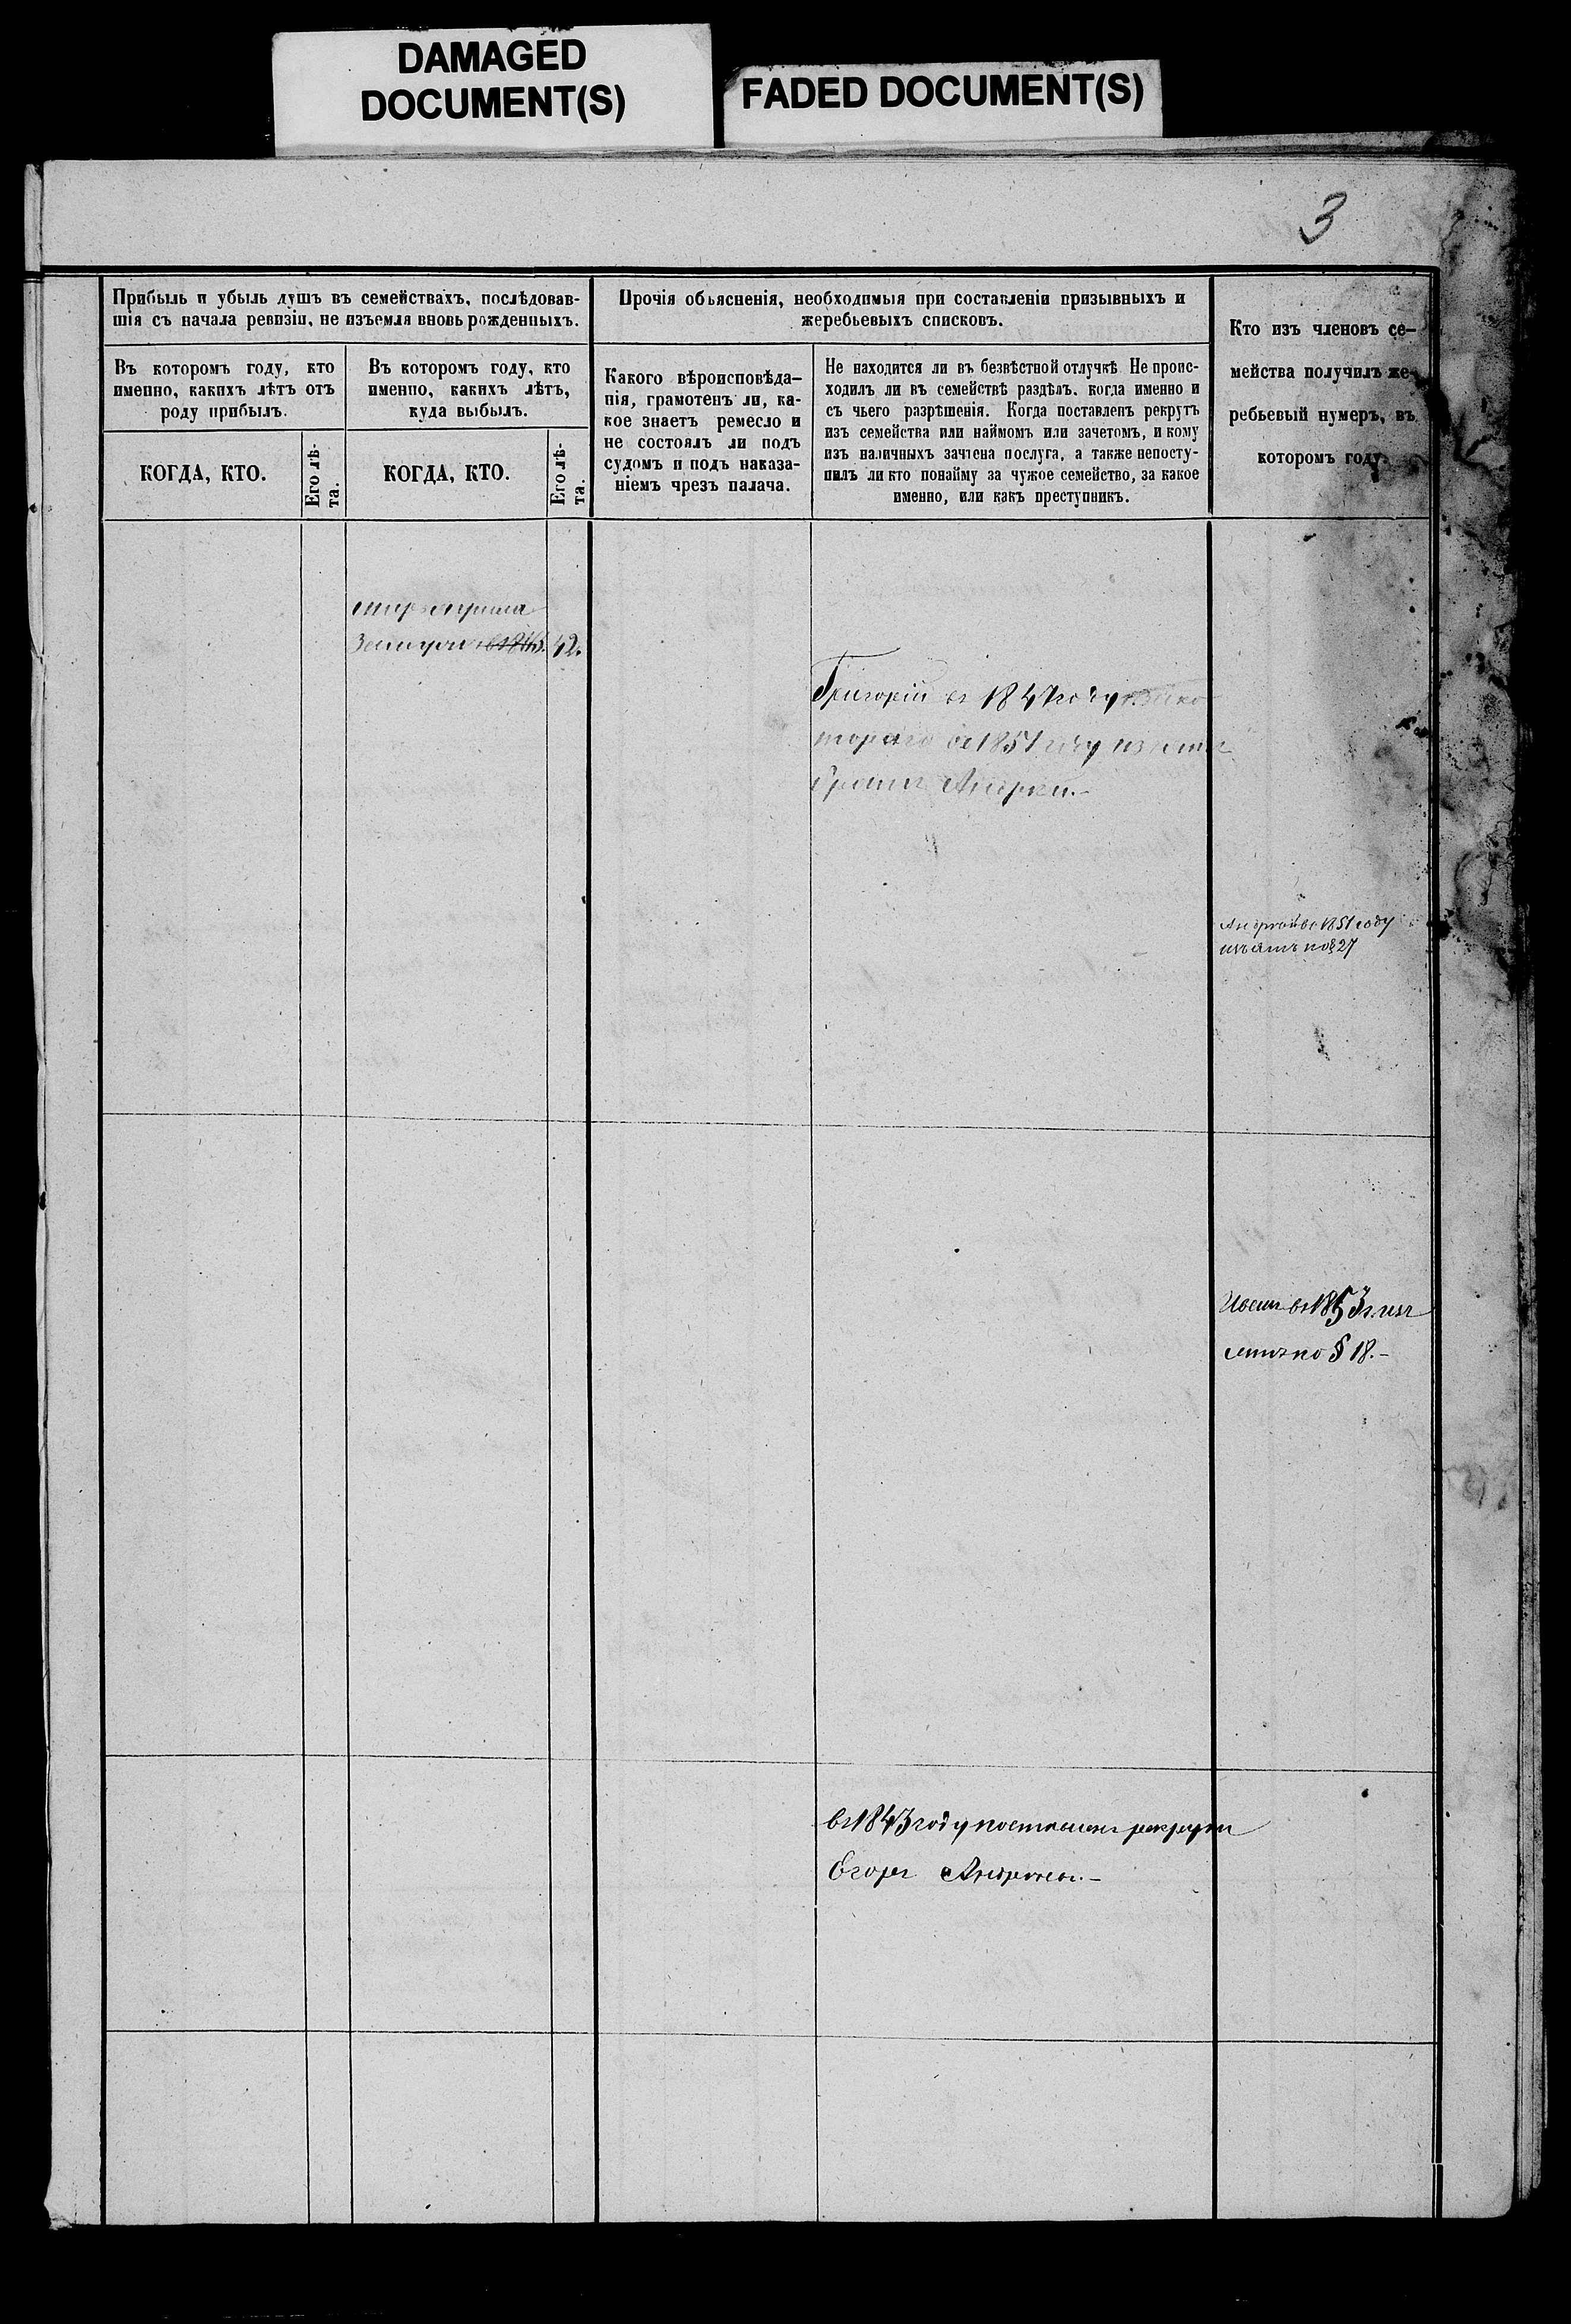 DAMAGED
DOCUMENT(S)
FADED DOCUMENT(S)
3
Прибыль и убыль душъ въ семействахъ, послѣдовав-
шія съ начала ревизіи, не изъемля вновь рожденныхъ.
Въ которомъ году, кто
именно, какихъ лѣтъ отъ
роду прибылъ.
КОГДА, КТО.
Его лѣ-
та.
Въ которомъ году, кто
именно, какихъ лѣтъ,
куда выбылъ.
КОГДА, КТО.
Его лѣ-
та.
Прочія объясненія, необходимыя при составленіи призывныхъ и
жеребьевыхъ списковъ.
Какого вѣроисповѣда-
нія, грамотенъ ли, ка-
кое знаетъ ремесло и
не состоялъ ли подъ
судомъ и подъ наказа-
ніемъ чрезъ палача.
Не находится ли въ безвѣстной отлучкѣ Не проис-
ходилъ ли въ семействѣ раздѣлъ. когда именно и
съ чьего разрѣшенія. Когда поставленъ рекрутъ
изъ семейства или наймомъ или зачетомъ, и кому
изъ наличныхъ зачтена послуга, а также непосту-
пилъ ли кто понайму за чужое семейство, за какое
именно, или какъ преступникъ.
Кто изъ членовъ се-
мейства получилъ же-
ребьевый нумеръ, въ
которомъ году.
42.
Григорій въ 1847 году
тораго въ 1851 году изъятъ
братъ Андрей.-
Андрей въ 1851 году
изъятъ по § 27
въ 1853 г. изъ
ятъ по § 18.-
въ 1843 году поставленъ рекрутъ
Егоръ Андреевъ.-